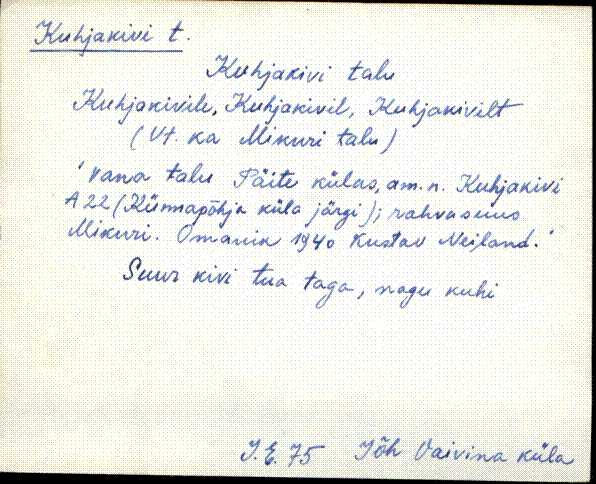 Kuhjakivi t.
Kuhjakivi talu
Kuhjakivile, Kuhjakivil, Kuhjakivilt
(Vt. ka Mikuri talu)
"Vana talu Päite külas, am. n. Kuhjakivi
A 22 (Künnapõhja küla järgi); rahvasuus
Mikuri. Omanik 1940 Kustav Neiland."
Suur kivi tua taga, nagu kuhi
J.E. 75 Jõh Vaivina küla